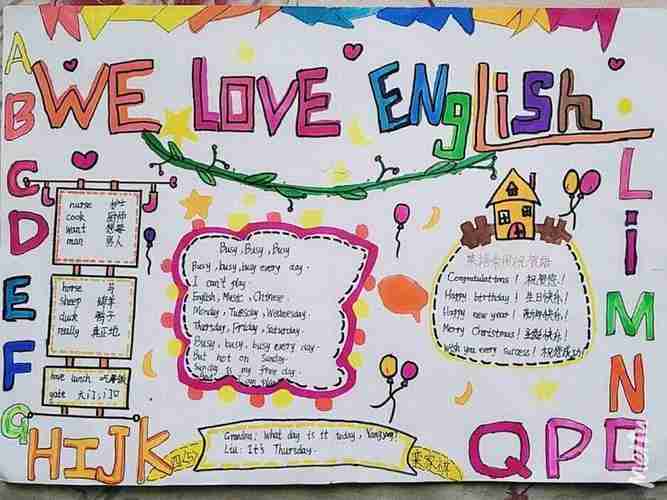 WE LOVE ENglisH
A
B
C
D
E
F
G
HIJK
L
i
M
N
QP
nurse 护士
cook 厨师
want 想要
man 男人
horse 马
sheep 绵羊
duck 鸭子
really 真正地
have lunch 吃午饭
gate 大门,门口
Busy, Busy, Busy
Busy, busy, busy every day.
I can't play.
English, Music, Chinese.
Monday, Tuesday, Wednesday.
Thursday, Friday, Saturday.
Busy, busy, busy every day.
But not on Sunday.
Sunday is my free day.
can play
英语常用祝贺语
Congratulations! 祝贺您!
Happy birthday! 生日快乐!
Happy new year! 新年快乐!
Merry Christmas! 圣诞快乐!
Wish you every success! 祝您成功!
Grandma: What day is it today, Yangyang?
Liu: It's Thursday.